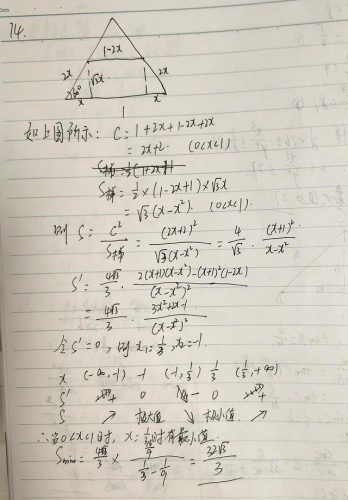 14.
1-2x
2x
√3x
2x
60°
x
x
1
如上图所示: C=1+2x+1-2x+2x
=2x+2 (0<x<1)
S梯=½(1+2x)
S梯=½×(1-2x+1)×√3x
=√3(x-x²). (0<x<1).
则S=C²/S梯=(2x+2)²/√3(x-x²)=4/√3·(x+1)²/x-x²
S'=4√3/3·2(x+1)(x-x²)-(x+1)²(1-2x)/(x-x²)²
=4√3/3·3x²+2x-1/(x-x²)²
令S'=0,则x₁=⅓,x₂=-1.
x (-∞,-1) -1 (-1,⅓) ⅓ (⅓,+∞)
S' + 0 - 0 +
S ↗ 极大值 ↘ 极小值 ↗
∴当0<x<1时, x=⅓时有最小值
Smin=4√3/3×16/9/⅓-1/9=32√3/3